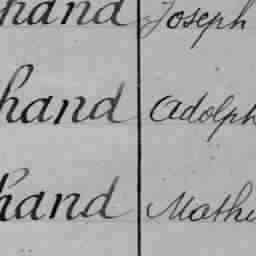 hand Joseph
hand Adolph
hand Mathi